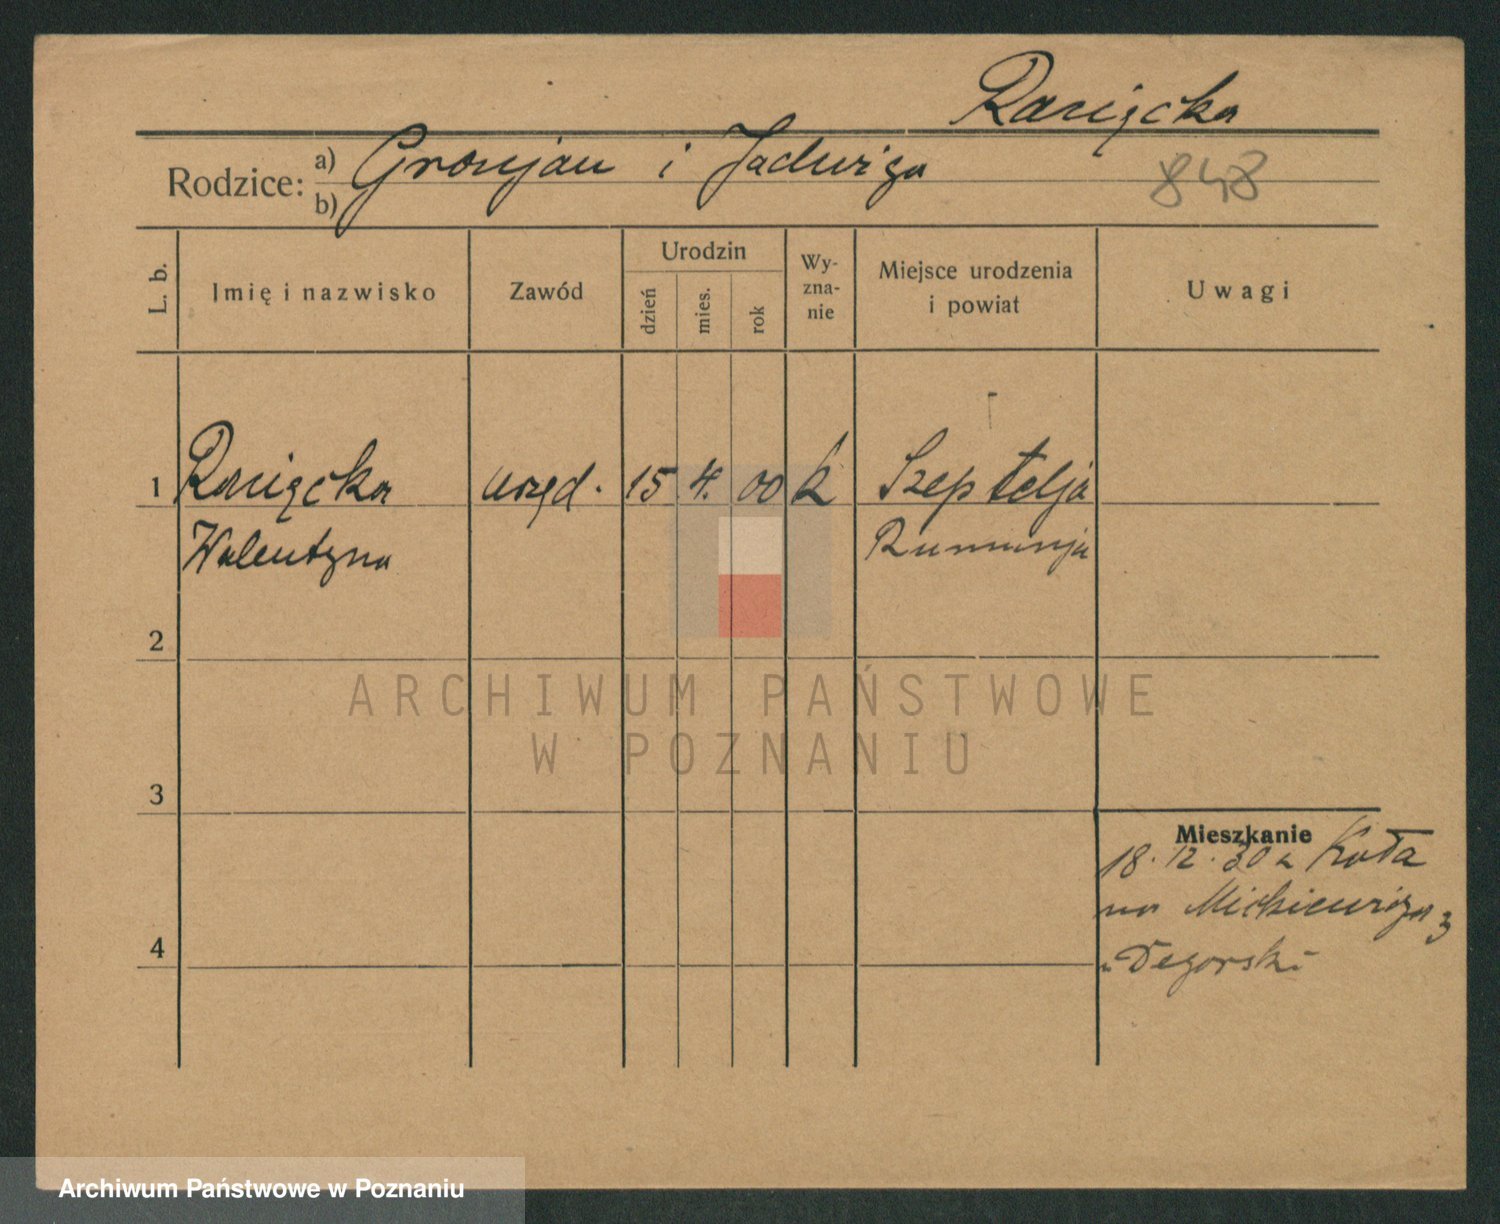 Ranięcka
Rodzice: a) Gronjan i Jadwiga
b)
848
L. b.
Imię i nazwisko
Zawód
Urodzin
dzień
mies.
rok
Wy-
zna-
nie
Miejsce urodzenia
i powiat
Uwagi
1 Ranięcka urzęd. 15 4. 00 k Szeptelja
Walentyna Rumunja
2
3
4
Mieszkanie
18. 12. 30 z Koła
na Mickiewicza 3
Degorski
ARCHIWUM PAŃSTWOWE
W POZNANIU
Archiwum Państwowe w Poznaniu